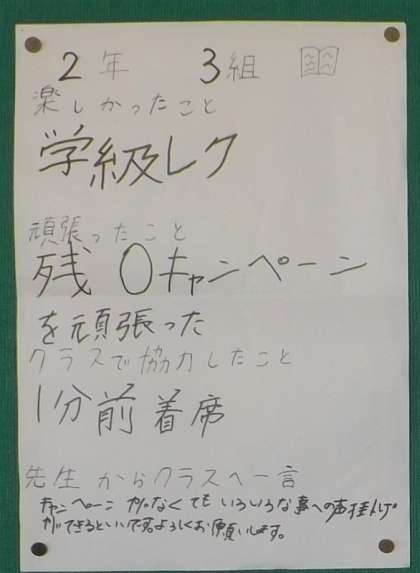 2年 3組
楽しかったこと
学級レク
頑張ったこと
残0キャンペーン
を頑張った
クラスで協力したこと
1分前着席
先生からクラスへ一言
キャンペーンがなくてもいろいろな事への声掛け
ができるといいです。よろしくお願いします。